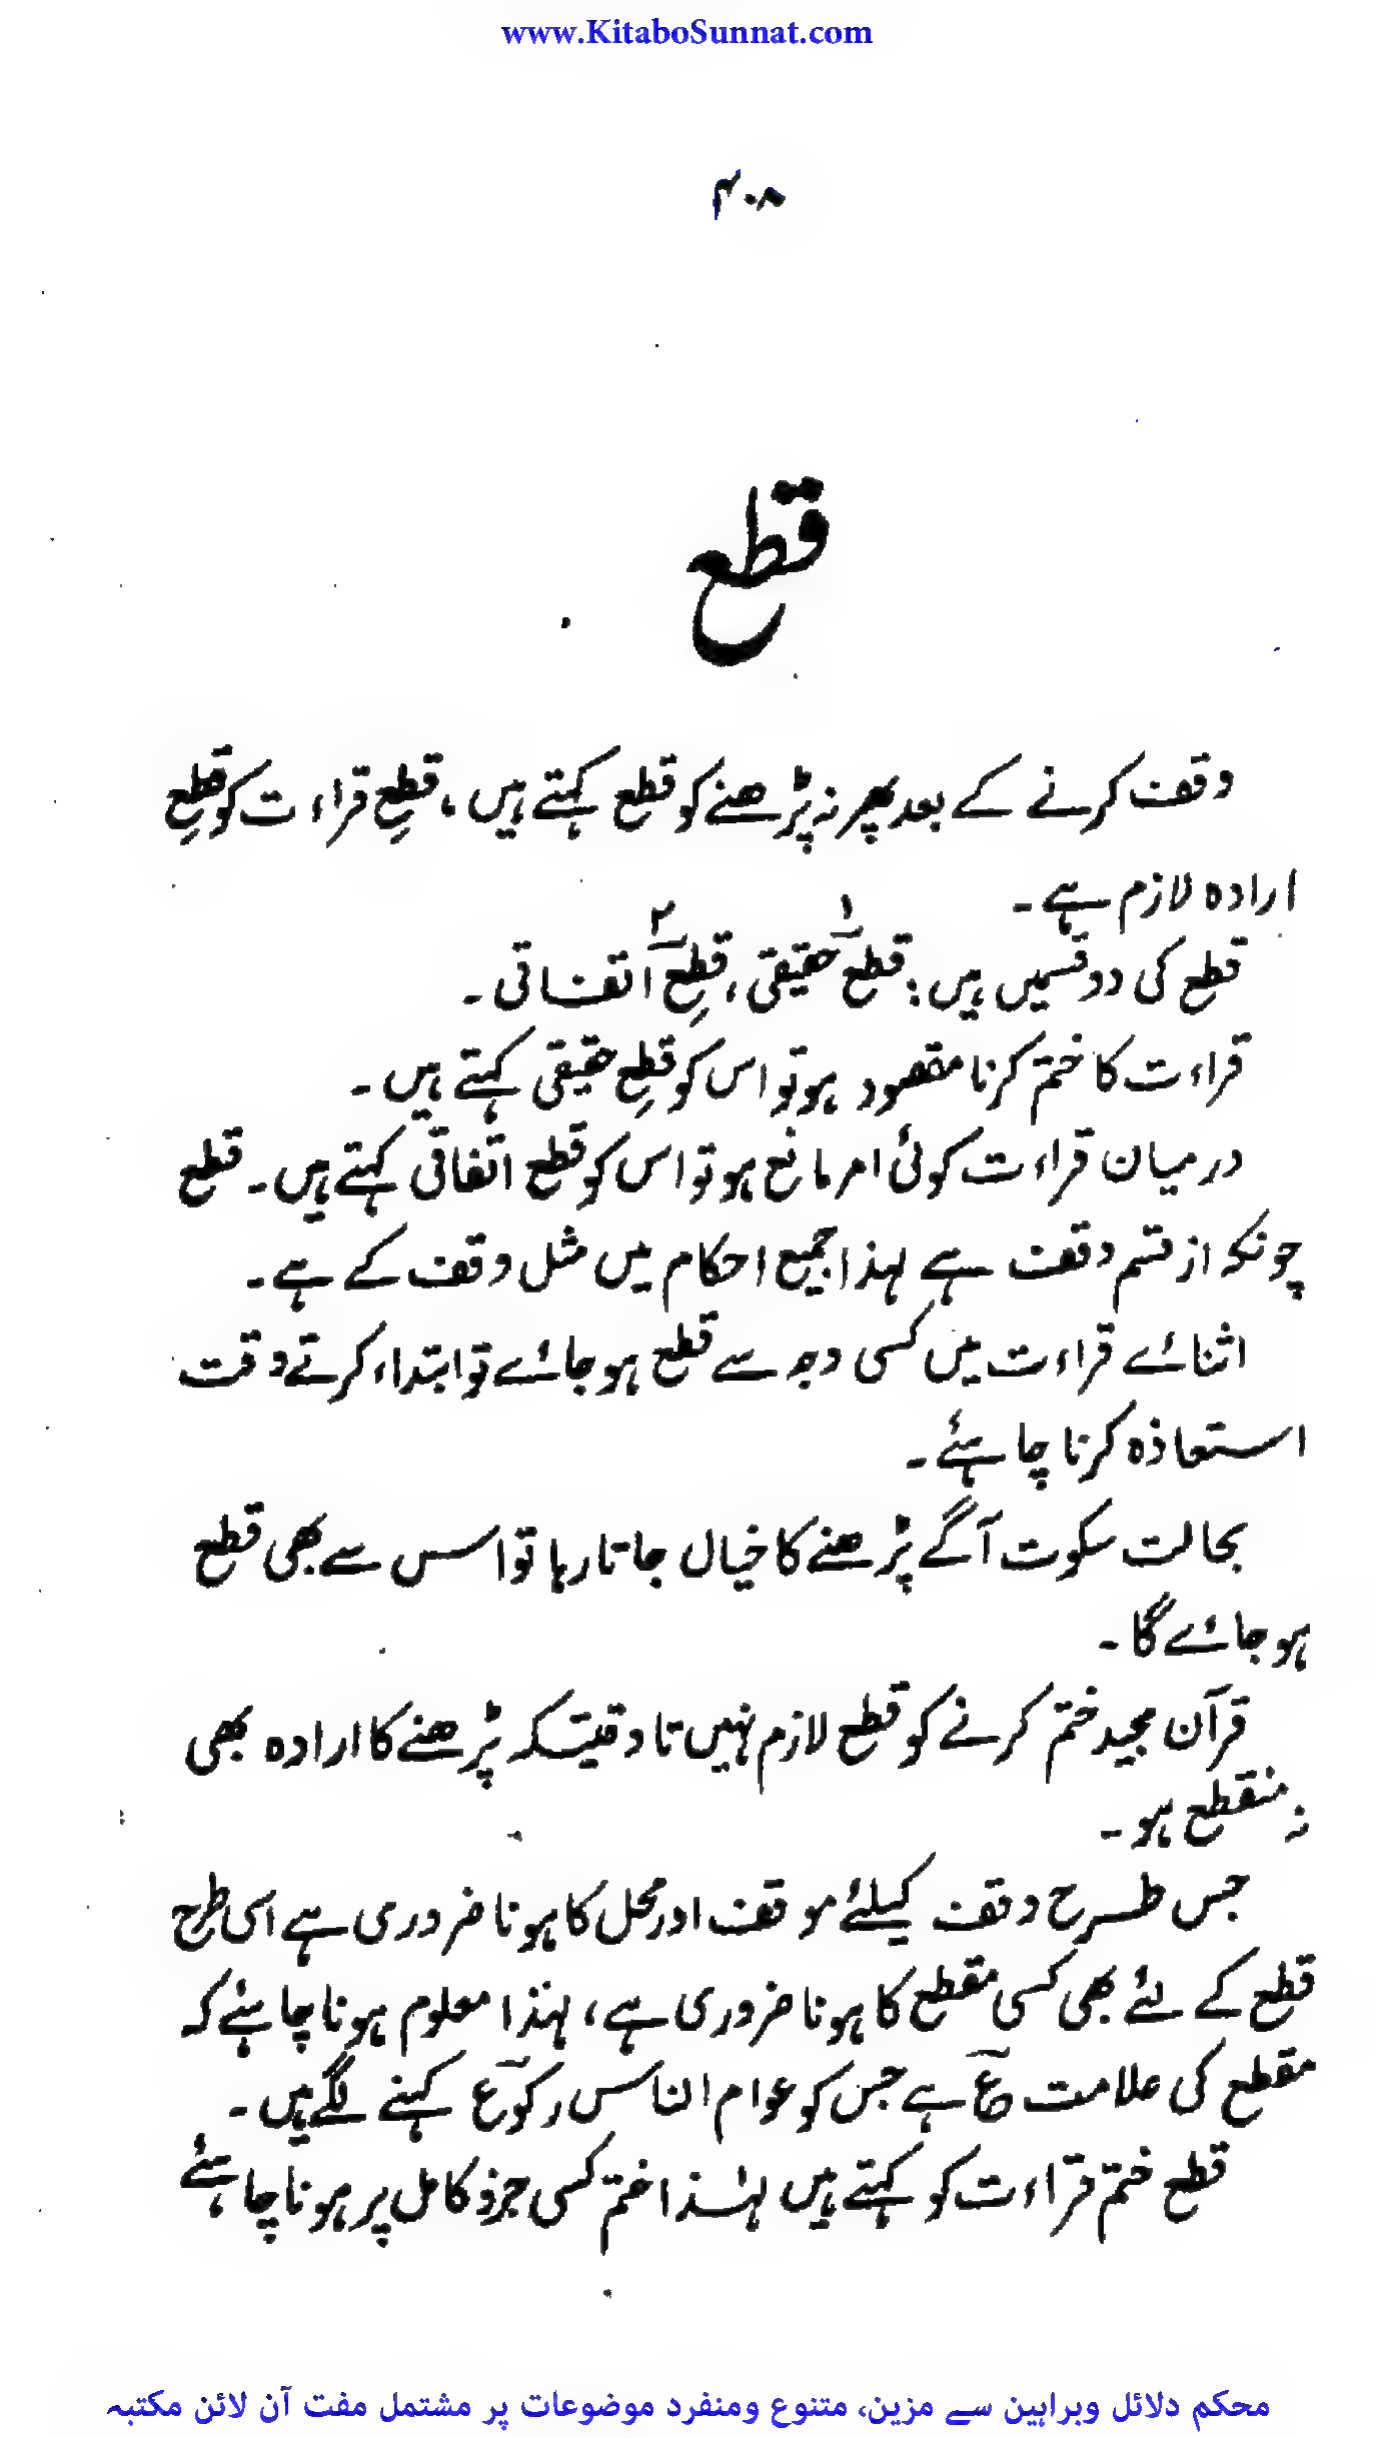 www.KitaboSunnat.com
۴۰۸
قطع
وقف کرنے کے بعد پھر نہ پڑھنے کو قطع کہتے ہیں، قطعِ قراءت کو قطعِ
ارادہ لازم ہے۔
قطع کی دو قسمیں ہیں: ۱ قطع حقیقی، ۲ قطعِ اتفاقی۔
قراءت کا ختم کرنا مقصود ہو تو اس کو قطعِ حقیقی کہتے ہیں۔
درمیان قراءت کوئی امر مانع ہو تو اس کو قطع اتفاقی کہتے ہیں۔ قطع
چونکہ از قسم وقف ہے لہذا جمیع احکام میں مثل وقف کے ہے۔
اثنائے قراءت میں کسی وجہ سے قطع ہو جائے تو ابتداء کرتے وقت
استعاذہ کرنا چاہئے۔
بحالت سکوت آگے پڑھنے کا خیال جاتا رہا تو اس سے بھی قطع
ہو جائے گا۔
قرآن مجید ختم کرنے کو قطع لازم نہیں تا وقتیکہ پڑھنے کا ارادہ بھی
نہ منقطع ہو۔
جس طرح وقف کیلئے موقف اور محل کا ہونا ضروری ہے اسی طرح
قطع کے لئے بھی کسی مقطع کا ہونا ضروری ہے، لہذا معلوم ہونا چاہئے کہ
مقطع کی علامت عؔ ہے جس کو عوام الناس رکوع کہنے لگے ہیں۔
قطع ختم قراءت کو کہتے ہیں لہٰذا ختم کسی جزؤ کامل پر ہونا چاہئے
محکم دلائل وبراہین سے مزین، متنوع ومنفرد موضوعات پر مشتمل مفت آن لائن مکتبہ